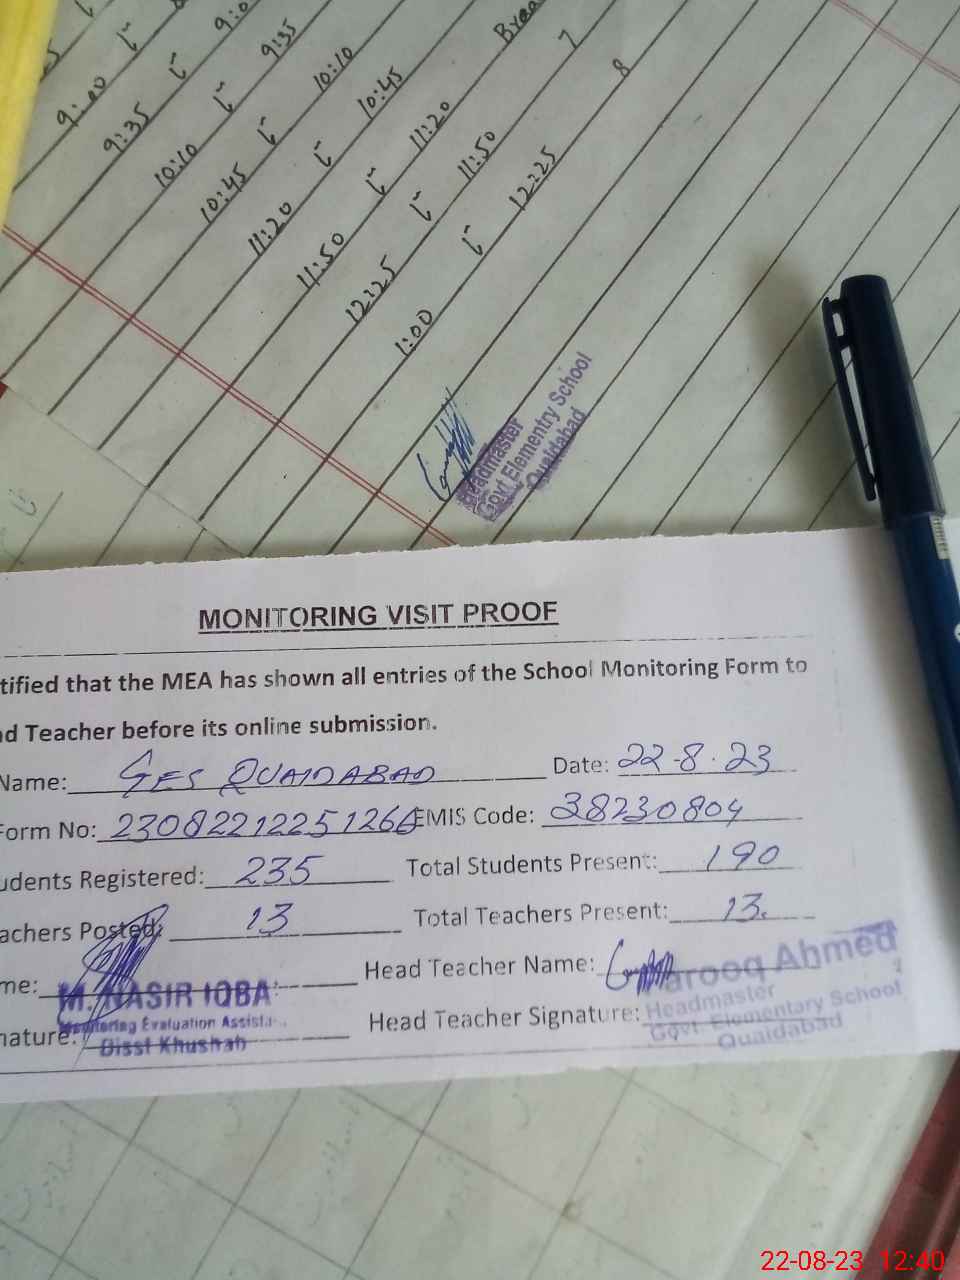 9:00 تا
9:35 تا 9:0
10:10 تا 9:35
10:45 تا 10:10
11:20 تا 10:45
11:50 تا 11:20 Brea
12:25 تا 11:50 7
1:00 تا 12:25 8
Headmaster
Govt Elementry School
Quaidabad
MONITORING VISIT PROOF
tified that the MEA has shown all entries of the School Monitoring Form to
d Teacher before its online submission.
Name: GES QUAIDABAD Date: 22-8-23
Form No: EMIS Code: 38230804
udents Registered: 235 Total Students Present: 190
achers Posted: 13 Total Teachers Present: 13.
me: M. NASIR IQBA Head Teacher Name: arooq Ahmed
Monitoring Evaluation Assista
nature: Disst Khushab Head Teacher Signature: Headmaster
Govt. Elementary School
Quaidabad
22-08-23 12:40